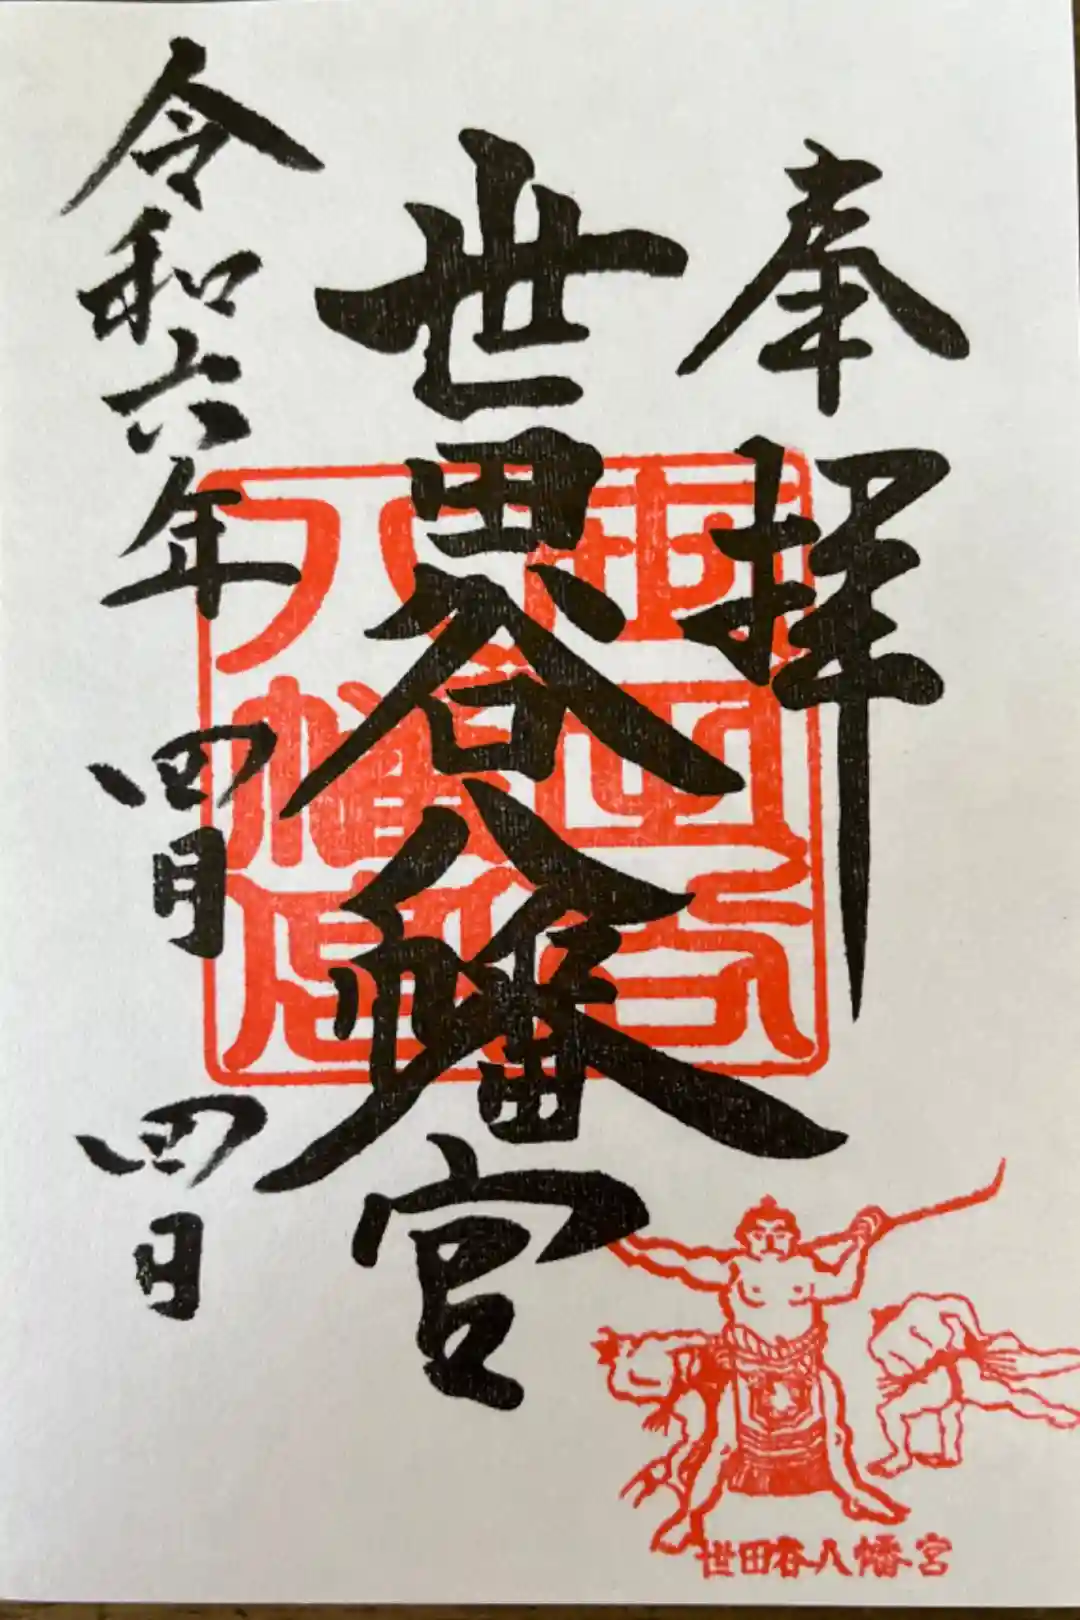 奉拝
世田谷八幡宮
世田谷
八幡宮
令和六年 四月 四日
世田谷八幡宮